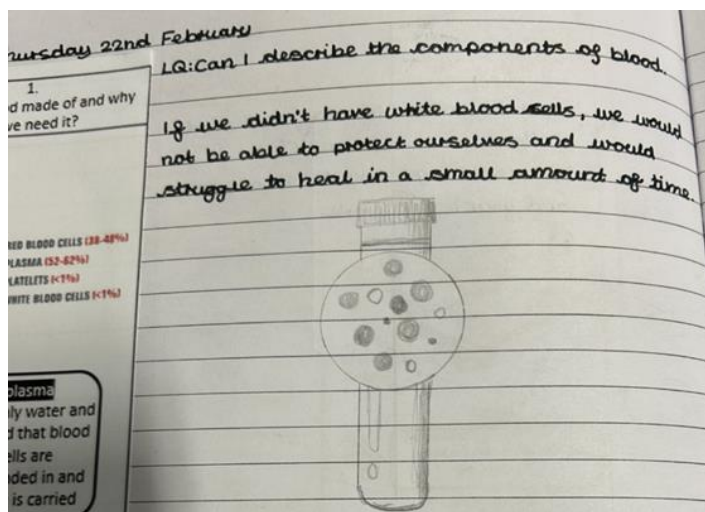 hursday 22nd February
LQ: Can I describe the components of blood.
1.
d made of and why
ve need it?
If we didn't have white blood sells, we would
not be able to protect ourselves and would
struggle to heal in a small amount of time.
RED BLOOD CELLS (38-48%)
LASMA (52-62%)
LATELETS (<1%)
HITE BLOOD CELLS (<1%)
plasma
ly water and
d that blood
ells are
ded in and
is carried